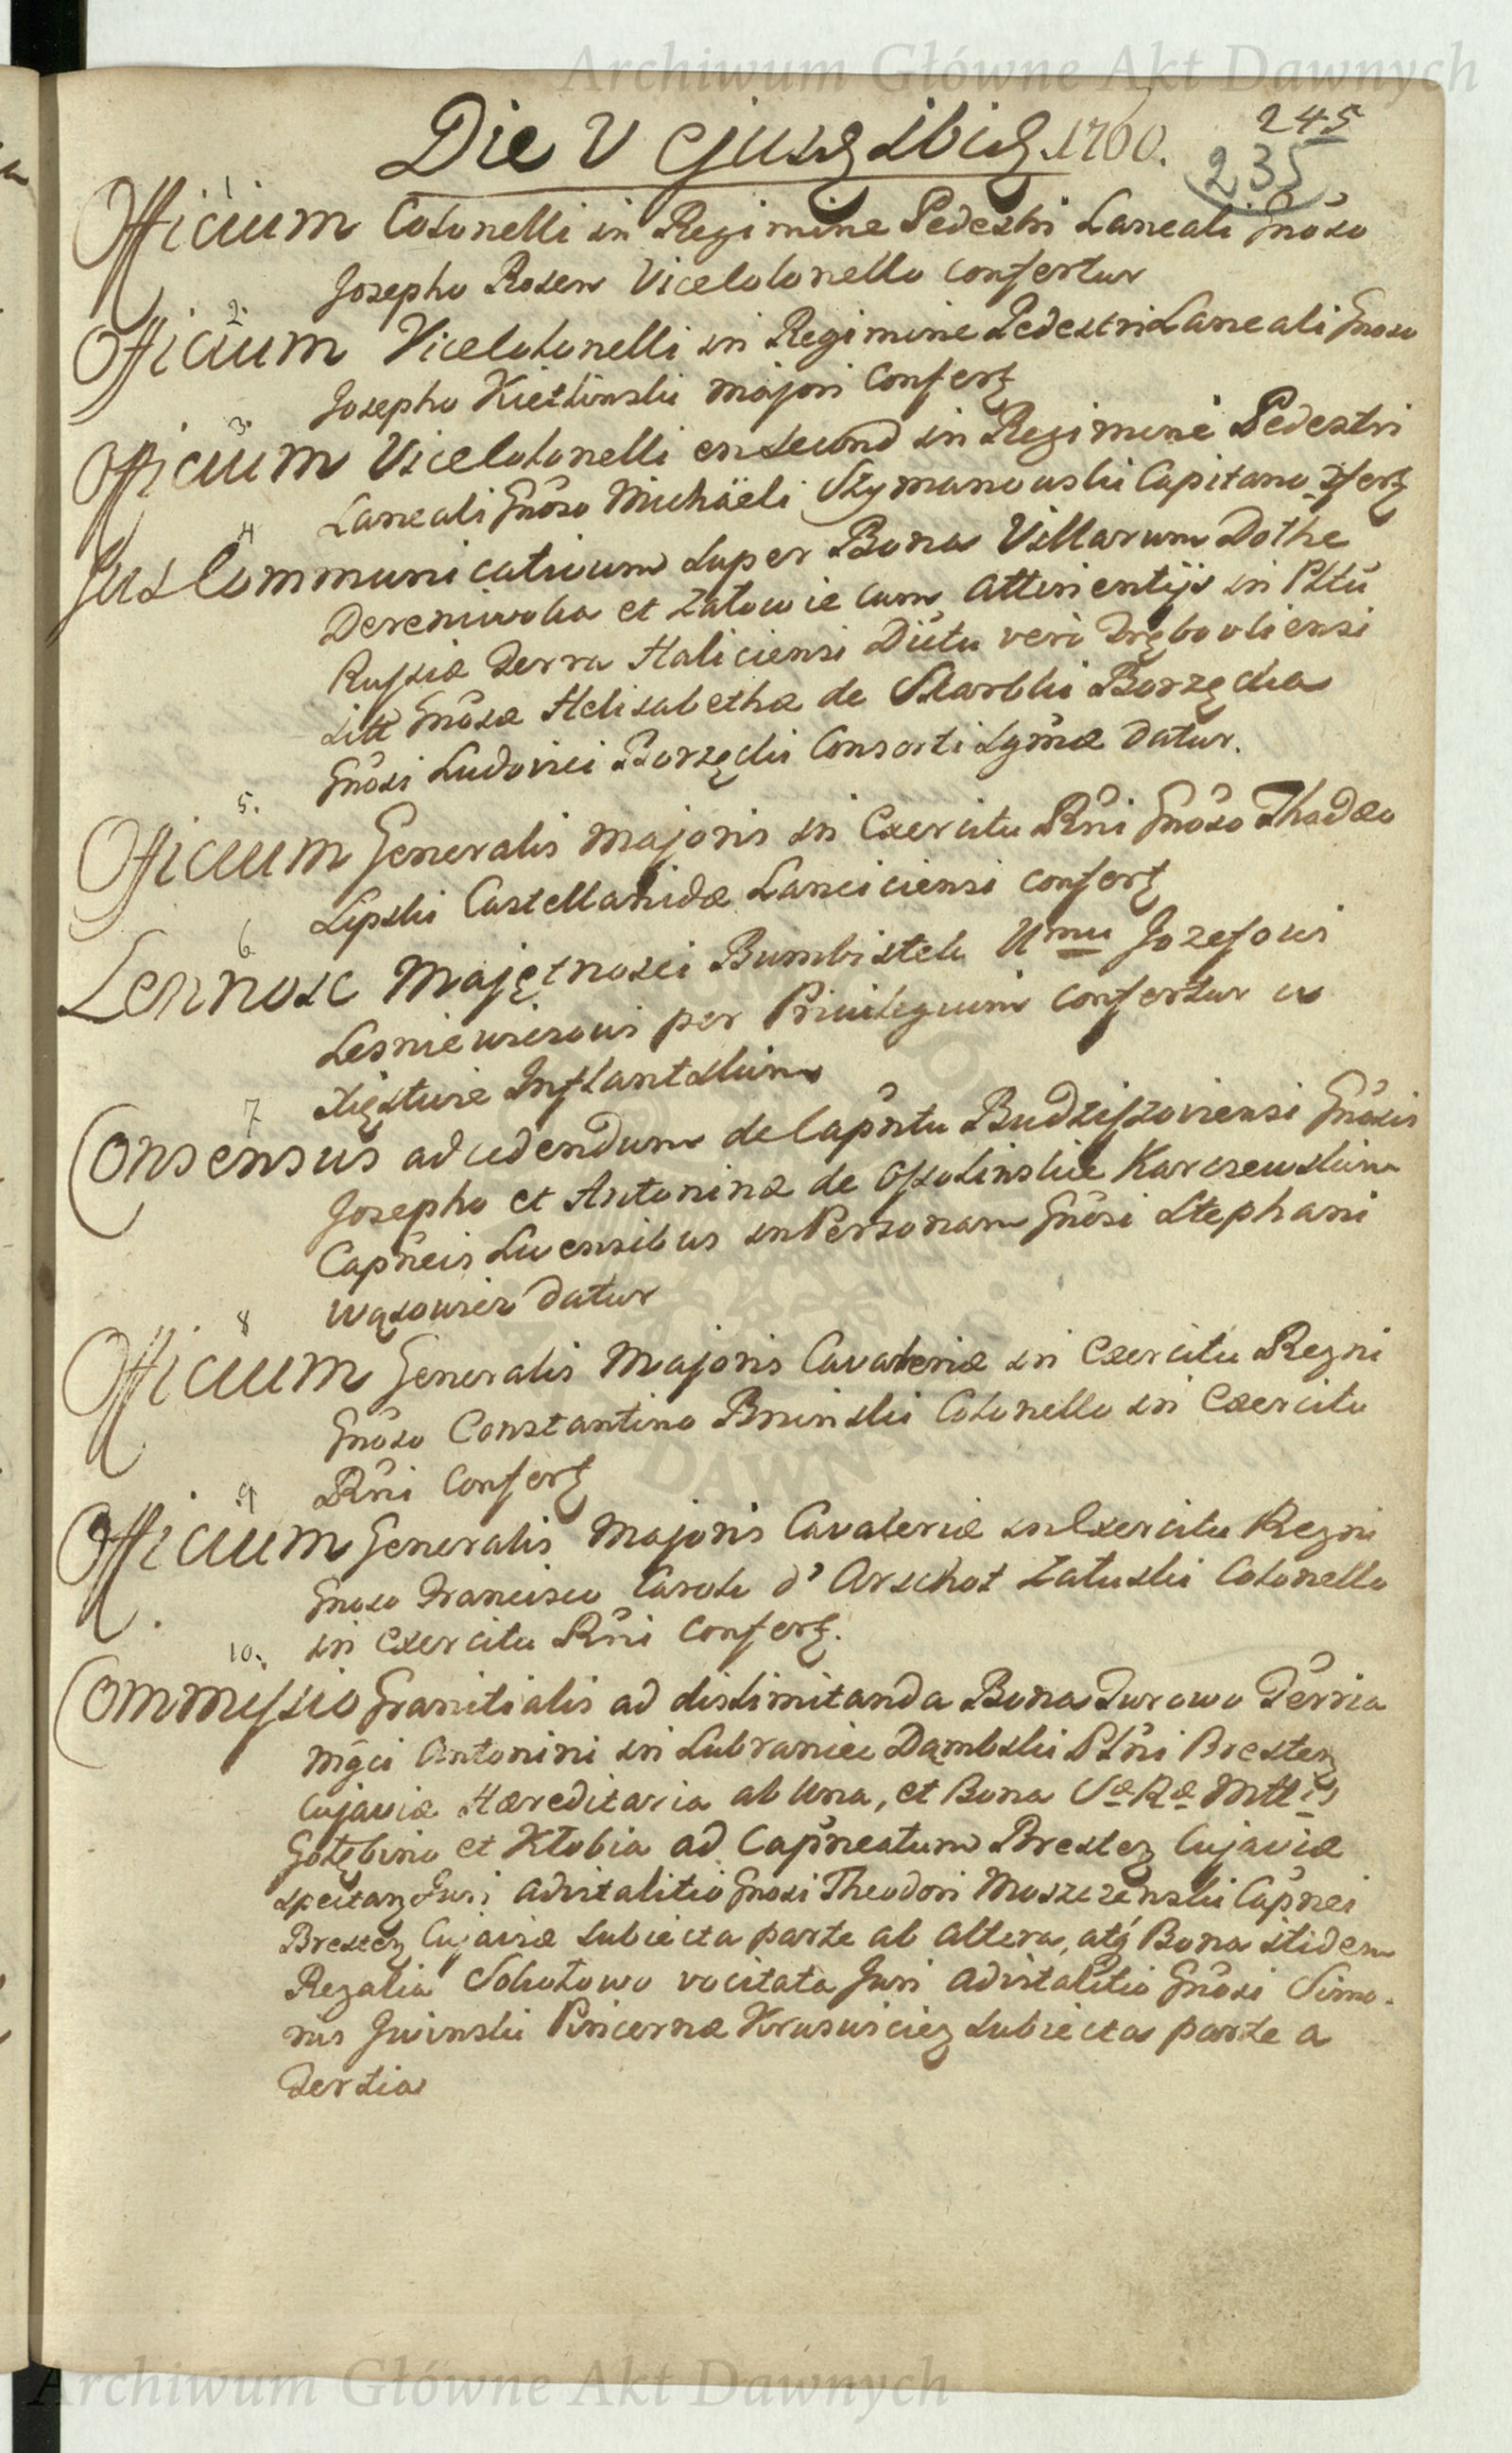 Archiwum Główne Akt Dawnych
245
Die V Ejusq̃ ibid. 1760.
235
1
Officium Colonelli in Regimine Pedestri Laneali Gnoso
Josepho Rosen Vicecolonello confertur
2.
Officium Vicecolonelli in Regimine Pedestri Laneali Gnoso
Josepho Kietlinski majori Confert
3.
Officium Vicecolonelli en second in Regimine Pedestri
Laneali Gnoso Michäeli Szymanowski Capitano
4
Jus Communicativum super Bona Villarum Dothe
Dereniowka et Zalowie cum attinentijs in Pltu
Russiæ Terra Haliciensi Dictu vero Trębovliensi
sitt Gnosæ Helisabethæ de Skarbki Borzęcka
Gnosi Ludovici Borzęcki Consorti Lgmæ datur.
5.
Officium Generalis Majoris in Exercitu Rni Gnoso Thadæo
Lipski Castellanidæ Lanciciensi confert
6
Lennosc Majętnosci Bumbistek Umu Jozefowi
Lesniewiczowi per Privilegium confertur w
Xięstwie Inflantskim
7
Consensus ad cedendum de Capntu Budziszoviensi Gnosis
Josepho et Antoninæ de Ossolinskie Karczewskim
Capneis Livensibus in Personam Gnosi Stephani
Wąsowicz datur
8
Officium Generalis Majoris Cavaleriæ in Exercitu Regni
Gnoso Constantino Bninski Colonello in Exercitu
Rni Confert
9
Officium Generalis Majoris Cavaleriæ in Exercitu Regni
Gnoso Francisco Carolo d'Arschot Zaluski Colonello
in Exercitu Rni confert.
10.
Commissio Granitialis ad dislimitanda Bona Turowo Terria
Mgci Antonini in Lubraniec Dąmbski Plni Bresten
Cujaviæ Hæreditaria ab una, et Bona Sæ Ræ Mttis
Gołębin et Kłobia ad Capneatum Bresten Cujaviæ
spectan Juri advitalitio Gnosi Theodori Moszczenski Capnei
Bresten Cujaviæ subiecta parte ab altera, atq́ Bona itidem
Regalia Sokołowo vocitata Juri advitalitio Gnosi Simo-
nis Jwinski Pincernæ Kruswicien subiecta parte a
Tertia
Archiwum Główne Akt Dawnych